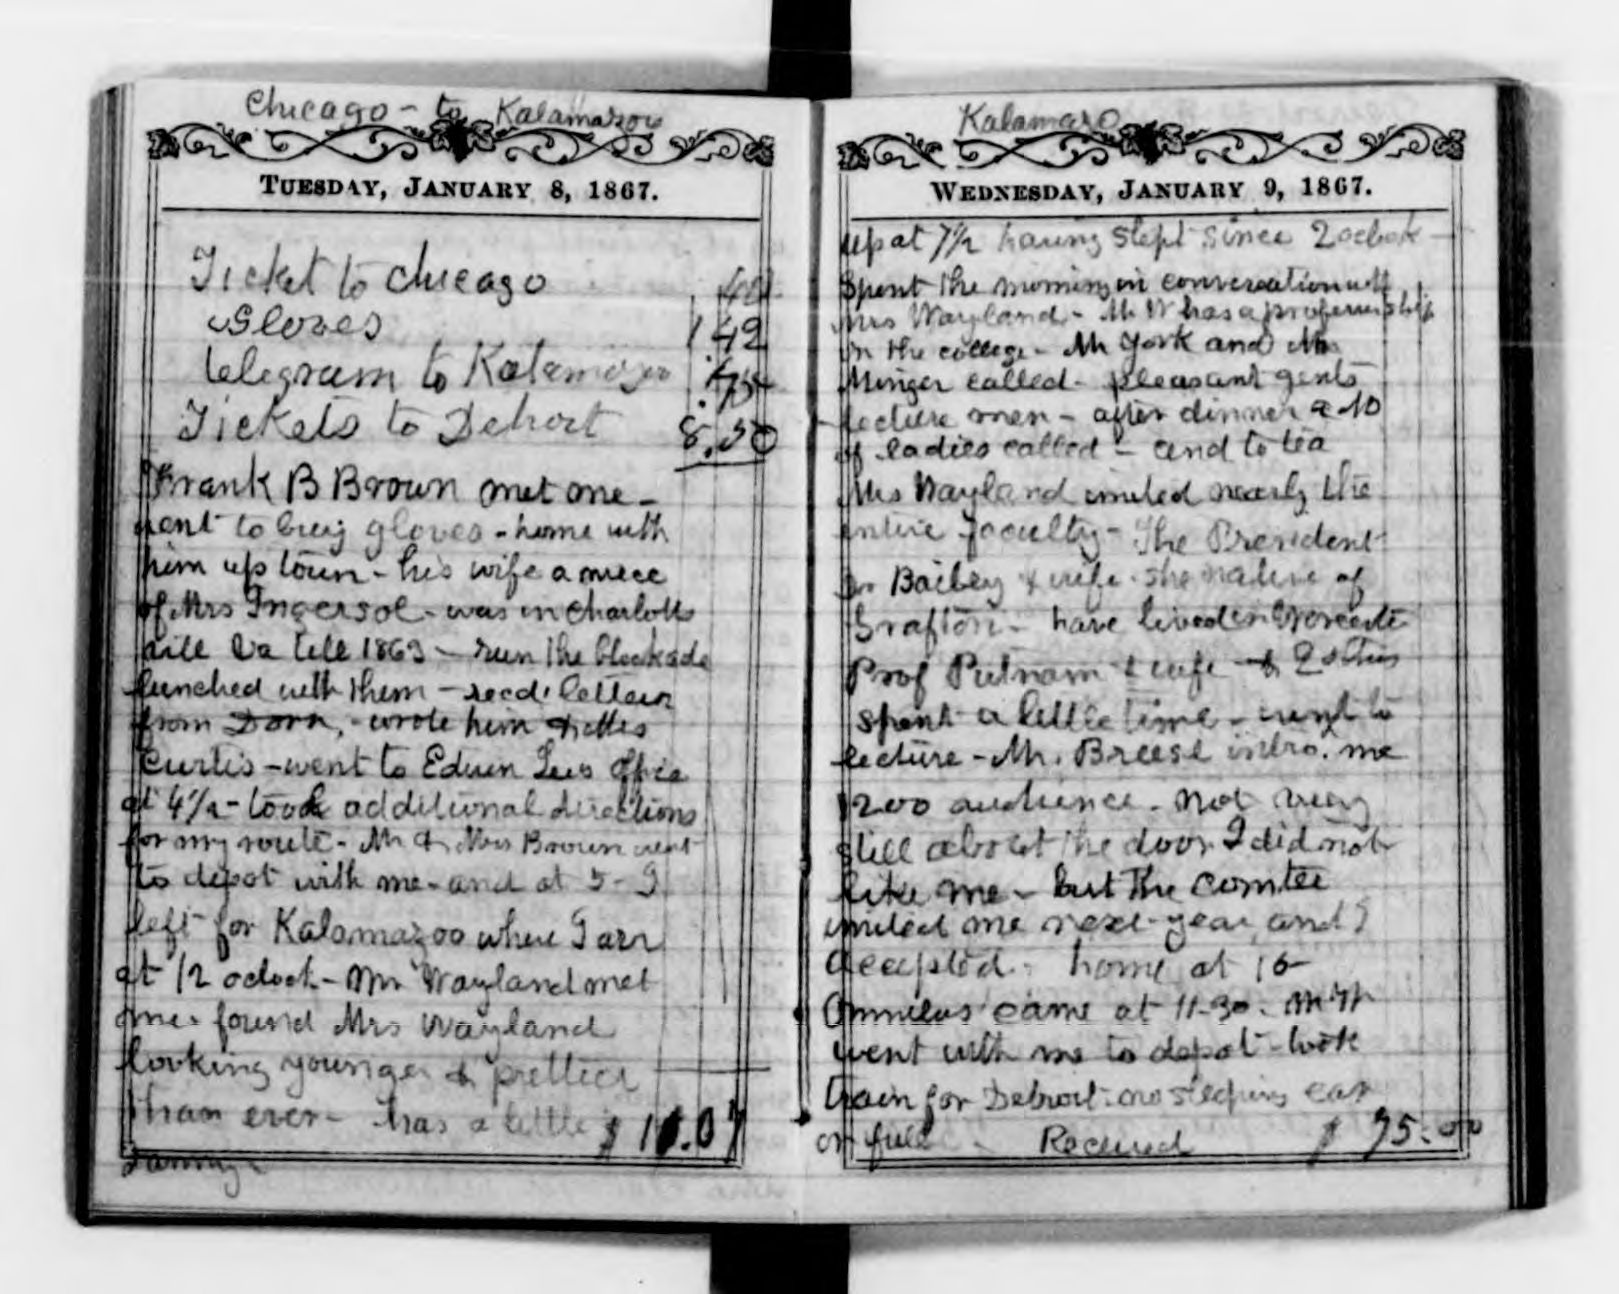 Chicago - to Kalamazoo
TUESDAY, JANUARY 8, 1867.
Ticket to Chicago
Gloves 1.42
telegram to Kalamazoo
Tickets to Detroit 8.50
Frank B Brown met me -
went to buy gloves - home with
him up town - his wife a niece
of Mrs Ingersol - was in Charlotts
ville Va till 1863 - run the blockade
lunched with them - recd. letters
from Dorn, - wrote him &
Curtis - went to Edwin Lees office
at 4 1/2 - took additional directions
for my route - Mr & Mrs Brown went
to depot with me - and at 5 -
left for Kalamazoo where I arr
at 12 oclock - Mr Wayland met
me - found Mrs Wayland
looking younger & prettier
than ever - has a little $ 11.07
Kalamazo
WEDNESDAY, JANUARY 9, 1867.
up at 7 1/2 having slept since 2 oclock -
Spent the morning in conversation with
Mrs Wayland - Mr W has a professorship
in the college - Mr York and Mr
Minger called - pleasant gents
lecture men - after dinner a no
of ladies called - and to tea
Mrs Wayland invited nearly the
entire faculty - The President
Dr Bailey & wife - she native of
Grafton - have lived in Worcester
Prof Putnam & wife & 2 others
spent a little time - went to
lecture - Mr. Breese intro. me
1200 audience - not very
still about the door I did not
like me - but the comtee
invited me next year and I
accepted - home at 10 -
Omnibus came at 11-30 - Mr W
went with me to depot - took
train for Detroit - no sleeping car
or full - Received $ 75.00